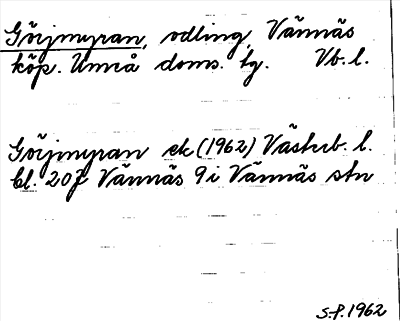 Görjmyran, odling, Vännäs
köp. Umeå doms. tg. Vb. l.
Görjmyran ek (1962) Västerb. l.
bl. 207 Vännäs 9 i Vännäs stn
S.P. 1962